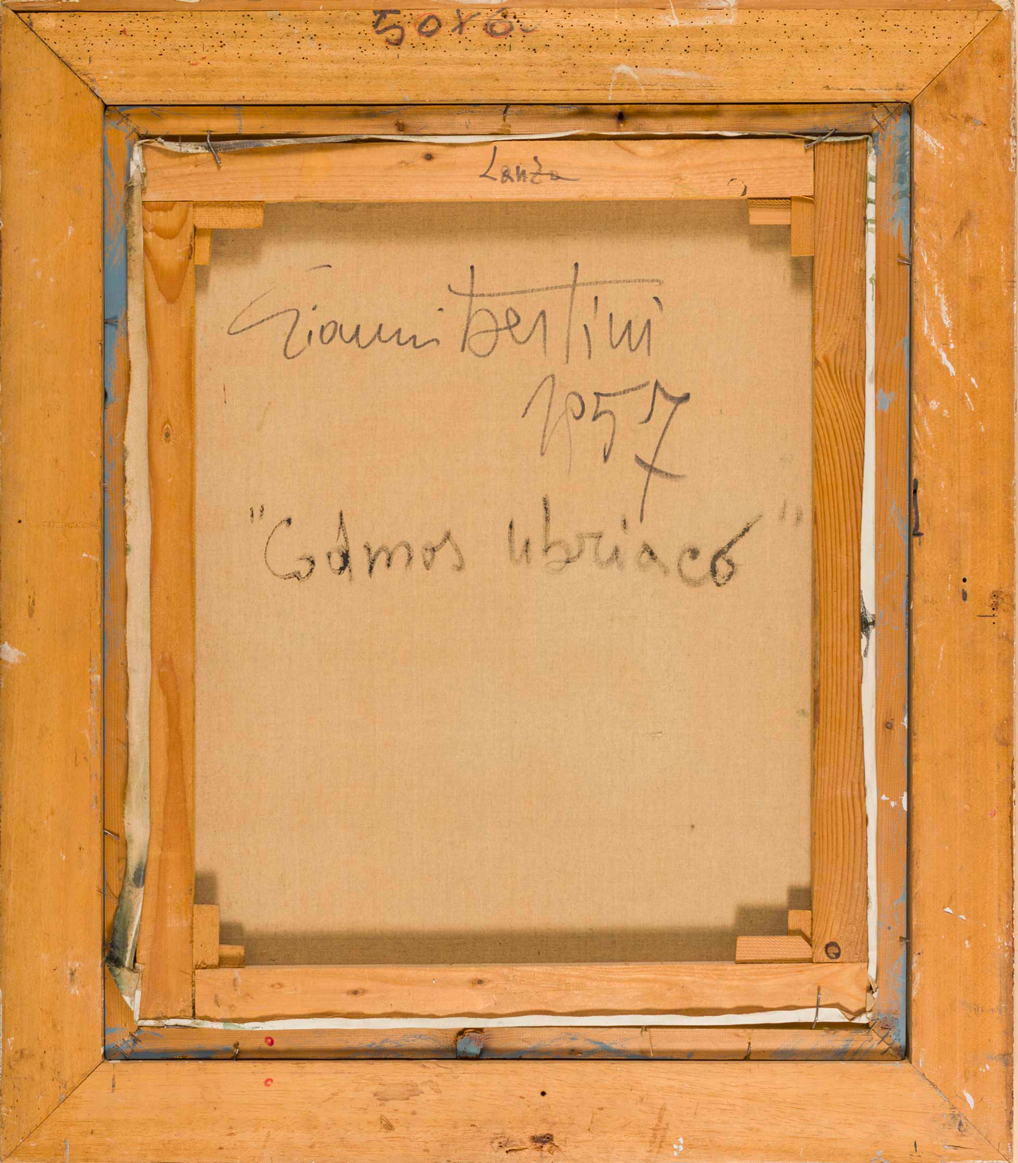 50x6
Lanza
Gianni Bertini
1957
"Cadmos ubriaco"